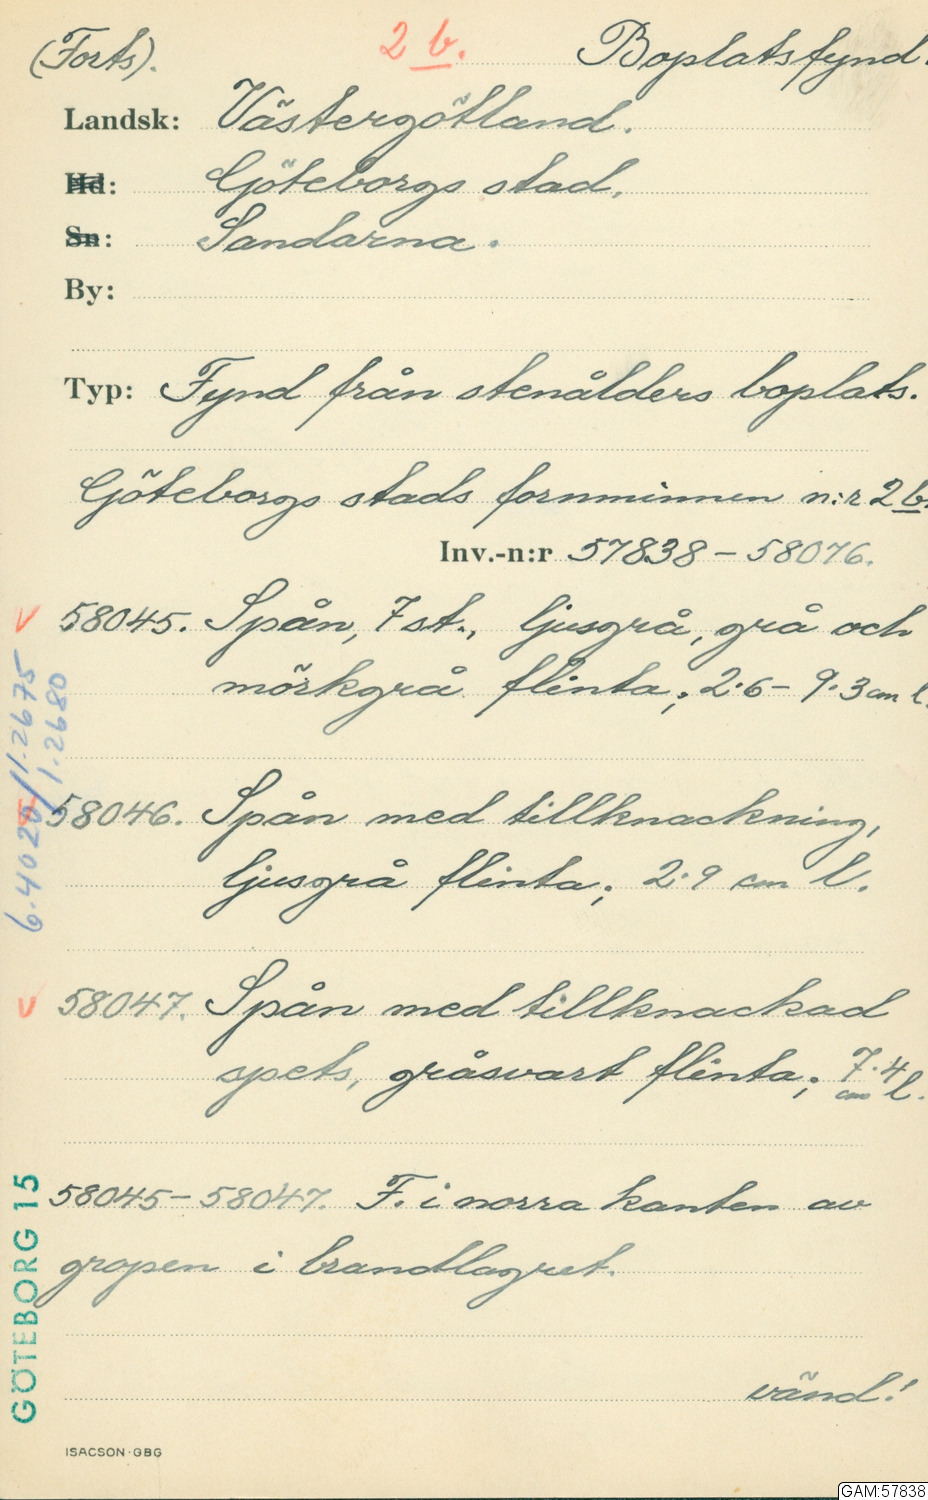 (Forts). 2 b. Boplatsfynd.
Landsk: Västergötland.
Hd: Göteborgs stad.
Sn: Sandarna.
By:
Typ: Fynd från stenålders boplats.
Göteborgs stads fornminnen n:r 2 b.
Inv.-n:r 57838 - 58076.
58045. Spån, 7 st., ljusgrå, grå och
mörkgrå flinta; 2.6 - 9.3 cm l.
58046. Spån med tillknackning,
ljusgrå flinta; 2.9 cm l.
58047. Spån med tillknackad
spets, gråsvart flinta; 7.4
cm l.
58045 - 58047. F. i norra kanten av
gropen i brandlagret.
vänd!
1.2675
1.2680
GÖTEBORG 15
ISACSON·GBG
GAM:57838